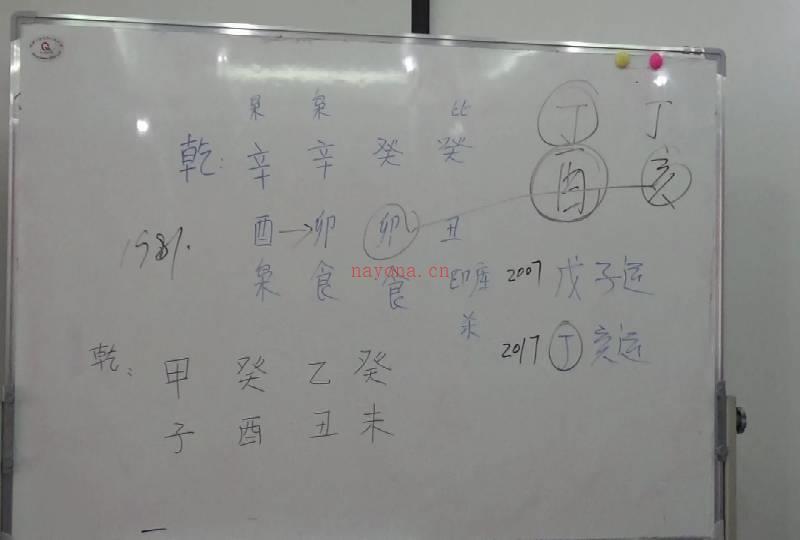 枭 枭 比
乾: 辛 辛 癸 癸
1981. 酉→卯 卯 丑
枭 食 食 印库
杀
丁 丁
酉 亥
2007 戊子运
2017 丁亥运
nayona.cn
乾: 甲 癸 乙 癸
子 酉 丑 未